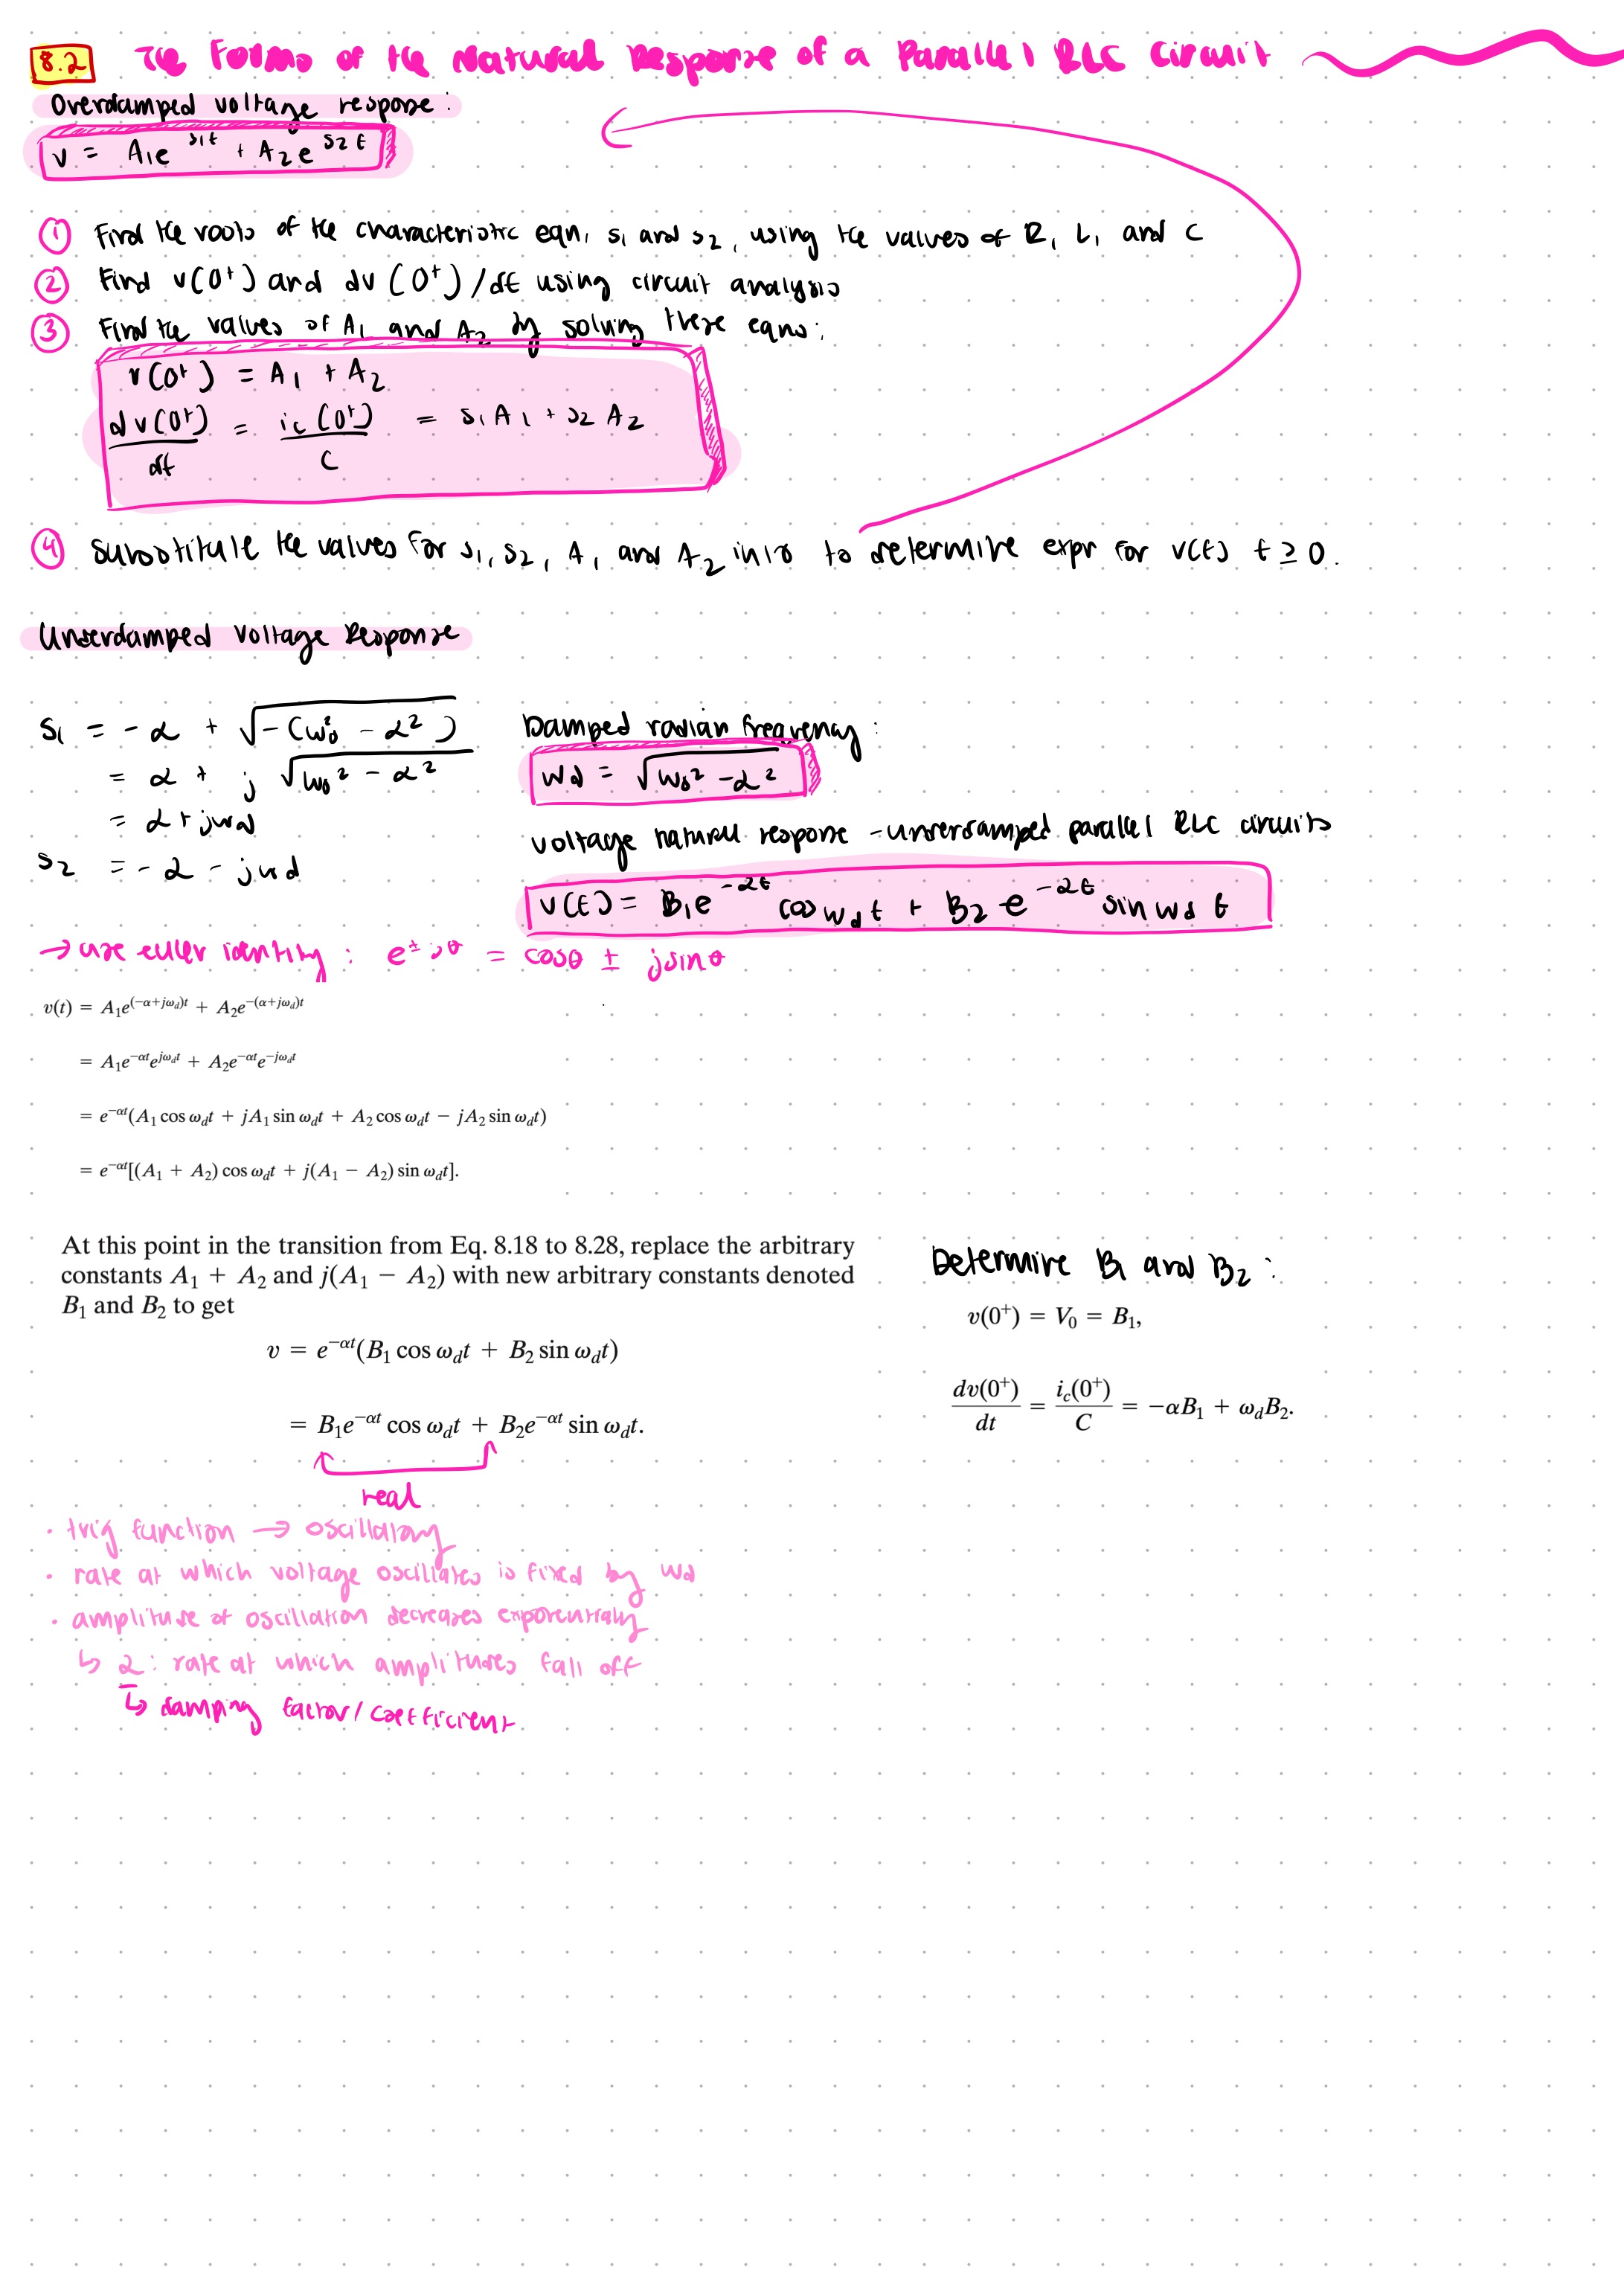 8.2 The Forms of the Natural Response of a Parallel RLC Circuit
Overdamped voltage response:
v = A₁e^{s₁t} + A₂e^{s₂t}
① Find the roots of the characteristic eqn, s₁ and s₂, using the values of R, L, and C
② Find v(0⁺) and dv(0⁺)/dt using circuit analysis
③ Find the values of A₁ and A₂ by solving these eqns:
v(0⁺) = A₁ + A₂
dv(0⁺)/dt = i_c(0⁺)/C = s₁A₁ + s₂A₂
④ substitute the values for s₁, s₂, A₁ and A₂ into to determine expr for v(t) t ≥ 0.
Underdamped Voltage Response
s₁ = -α + √(-(ω₀² - α²))
= α + j√(ω₀² - α²)
= α + jωd
s₂ = -α - jωd
Damped radian frequency:
ωd = √(ω₀² - α²)
voltage natural response - underdamped parallel RLC circuits
v(t) = B₁e^{-αt} cos ω_d t + B₂e^{-αt} sin ω_d t
→ use euler identity: e^{±jθ} = cosθ ± jsinθ
v(t) = A₁e^{(-α+jω_d)t} + A₂e^{-(α+jω_d)t}
= A₁e^{-αt}e^{jω_d t} + A₂e^{-αt}e^{-jω_d t}
= e^{-αt}(A₁ cos ω_d t + jA₁ sin ω_d t + A₂ cos ω_d t − jA₂ sin ω_d t)
= e^{-αt}[(A₁ + A₂) cos ω_d t + j(A₁ − A₂) sin ω_d t].
At this point in the transition from Eq. 8.18 to 8.28, replace the arbitrary
constants A₁ + A₂ and j(A₁ − A₂) with new arbitrary constants denoted
B₁ and B₂ to get
v = e^{-αt}(B₁ cos ω_d t + B₂ sin ω_d t)
= B₁e^{-αt} cos ω_d t + B₂e^{-αt} sin ω_d t.
real
Determine B₁ and B₂:
v(0⁺) = V₀ = B₁,
dv(0⁺)/dt = i_c(0⁺)/C = −αB₁ + ω_d B₂.
· trig function → oscillatory
· rate at which voltage oscillates is fixed by ωd
· amplitude of oscillation decreases exponentially
↳ α: rate at which amplitudes fall off
↳ damping factor/coefficient